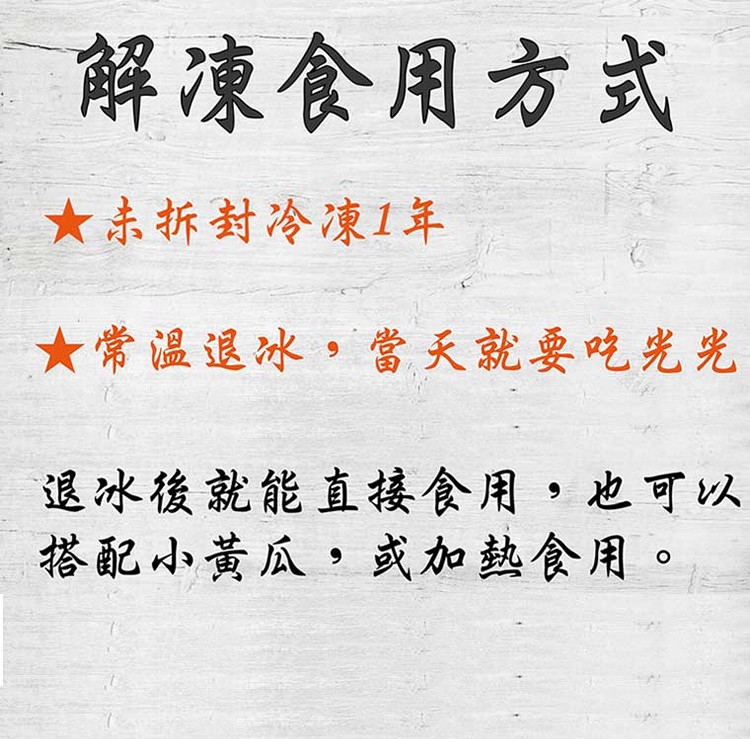 解凍食用方式
★未拆封冷凍1年
★常溫退冰，當天就要吃光光
退冰後就能直接食用，也可以
搭配小黃瓜，或加熱食用。